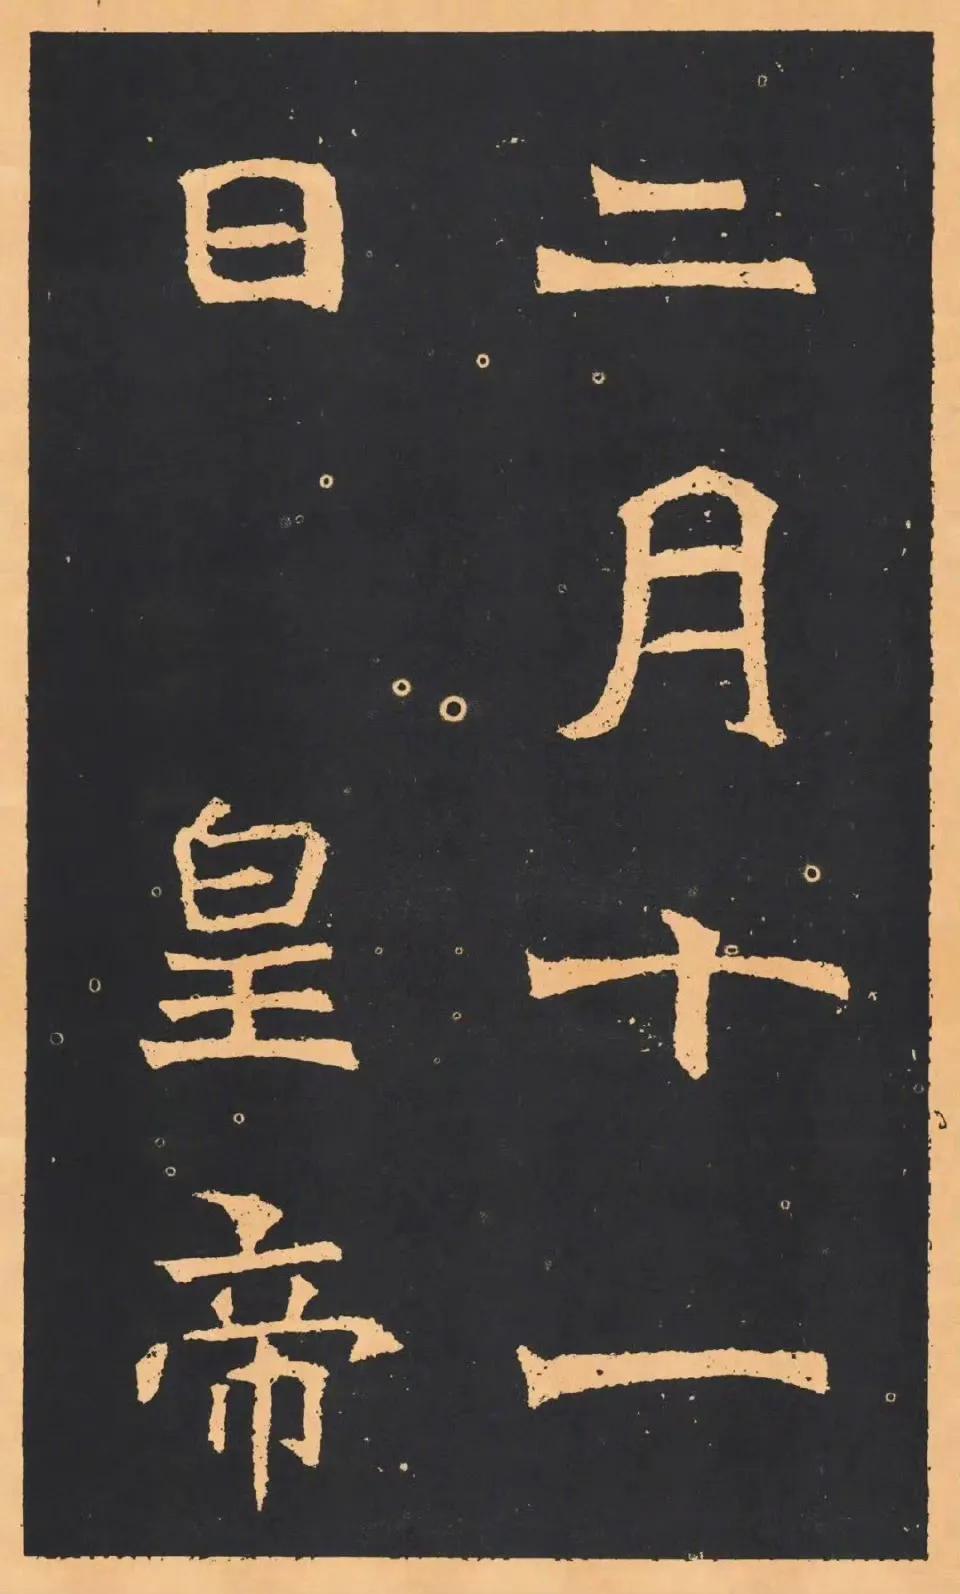 二月十一
日皇帝